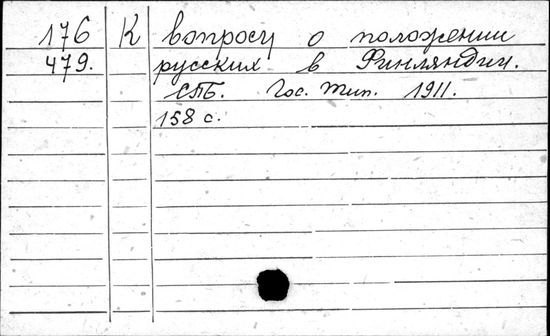 176 К вопросу о положении
479. русских в Финляндии.
СПБ. Гос. тип. 1911.
158 с.